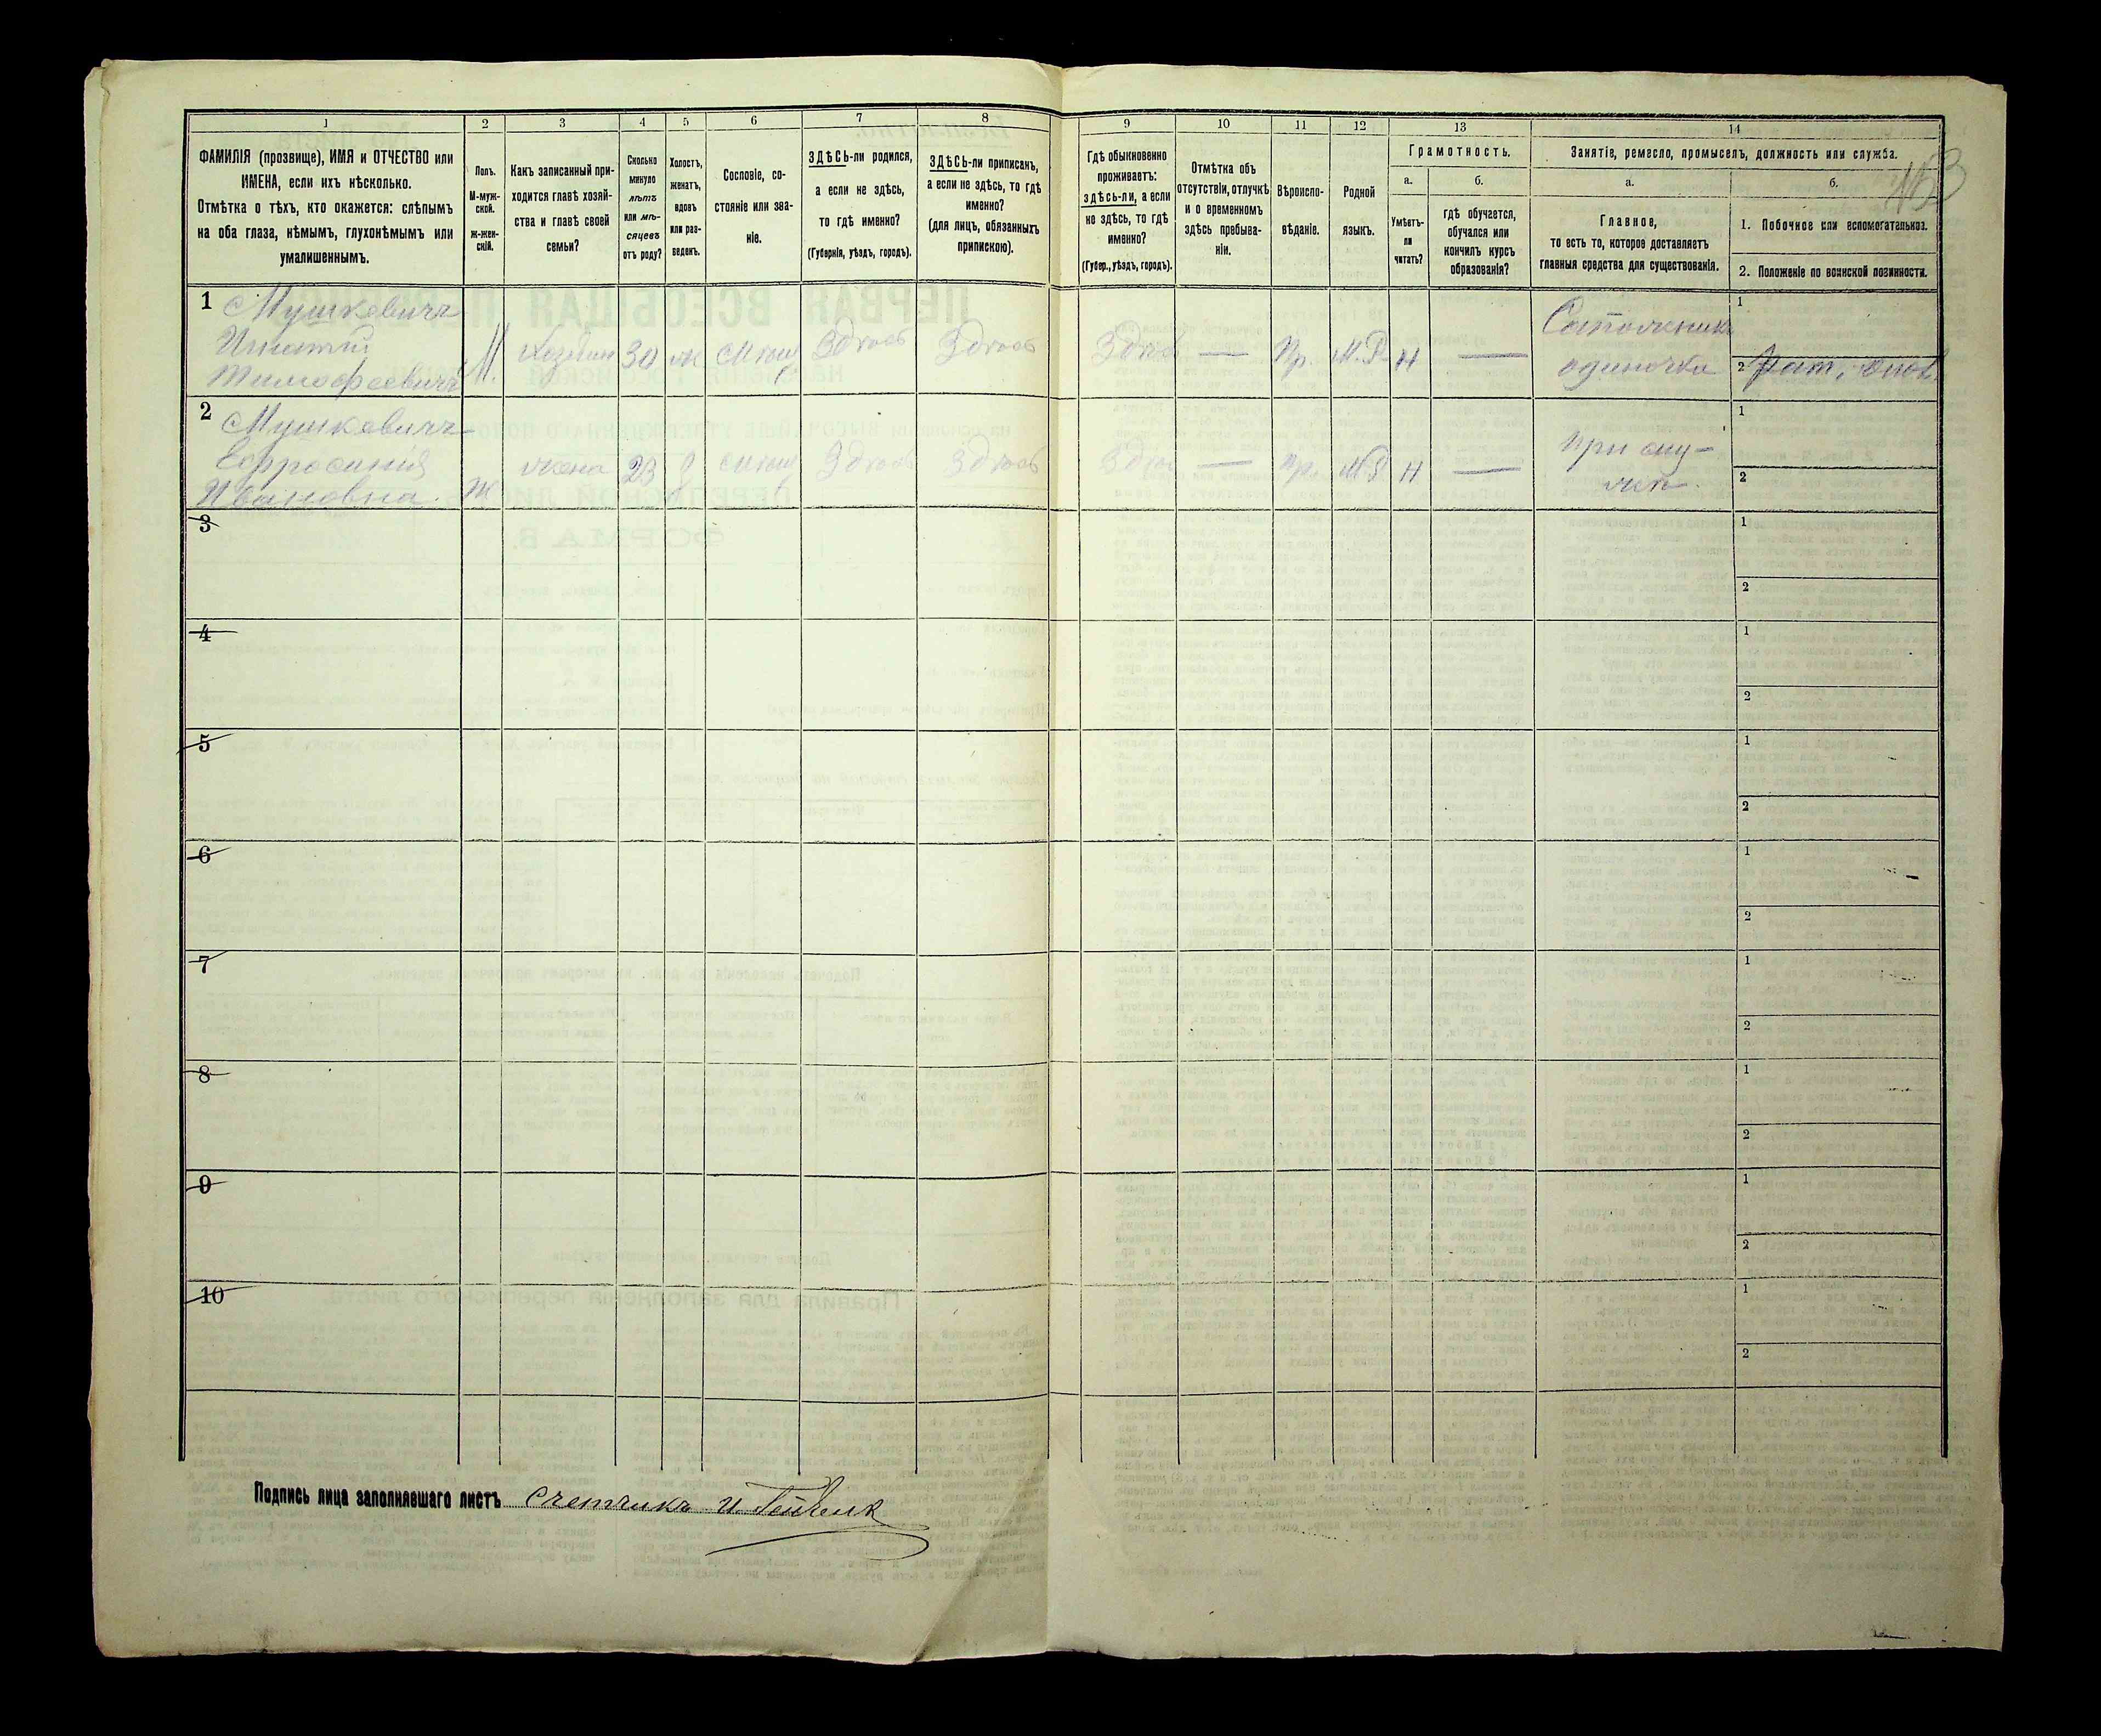 1 2 3 4 5 6 7 8 9 10 11 12 13 14
ФАМИЛІЯ (прозвище), ИМЯ и ОТЧЕСТВО или
ИМЕНА, если ихъ нѣсколько.
Отмѣтка о тѣхъ, кто окажется: слѣпымъ
на оба глаза, нѣмымъ, глухонѣмымъ или
умалишеннымъ.
Полъ.
М-муж-
ской.
ж-жен-
скій.
Какъ записанный при-
ходится главѣ хозяй-
ства и главѣ своей
семьи?
Сколько
минуло
лѣтъ
или мѣ-
сяцевъ
отъ роду?
Холостъ,
женатъ,
вдовъ
или раз-
веденъ.
Сословіе, со-
стояніе или зва-
ніе.
ЗДѢСЬ-ли родился,
а если не здѣсь,
то гдѣ именно?
(Губернія, уѣздъ, городъ).
ЗДѢСЬ-ли приписанъ,
а если не здѣсь, то гдѣ
именно?
(для лицъ, обязанныхъ
припискою).
Гдѣ обыкновенно
проживаетъ:
здѣсь-ли, а если
не здѣсь, то гдѣ
именно?
(Губер., уѣздъ, городъ).
Отмѣтка объ
отсутствіи, отлучкѣ
и о временномъ
здѣсь пребыва-
ніи.
Вѣроиспо-
вѣданіе.
Родной
языкъ.
Грамотность.
а.
Умѣетъ-
ли
читать?
б.
гдѣ обучается,
обучался или
кончилъ курсъ
образованія?
Занятіе, ремесло, промыселъ, должность или служба.
а.
Главное,
то есть то, которое доставляетъ
главныя средства для существованія.
б.
1. Побочное или вспомогательное.
2. Положеніе по воинской повинности.
1 Мушкевичъ
Игнатій
Тимофеевичъ
М. Хозяинъ 30 ж Здѣсь Здѣсь Здѣсь — Пр. М.Р. Н —
одиночка
1
2
2 Мушкевичъ
Ефросинія
Ивановна.
Ж жена 23 Здѣсь Здѣсь — пр. Н —
при му-
жѣ.
1
2
3
1
2
4
1
2
5
1
2
6
1
2
7
1
2
8
1
2
9
1
2
10
1
2
Подпись лица заполнявшаго листъ Счетчикъ И.